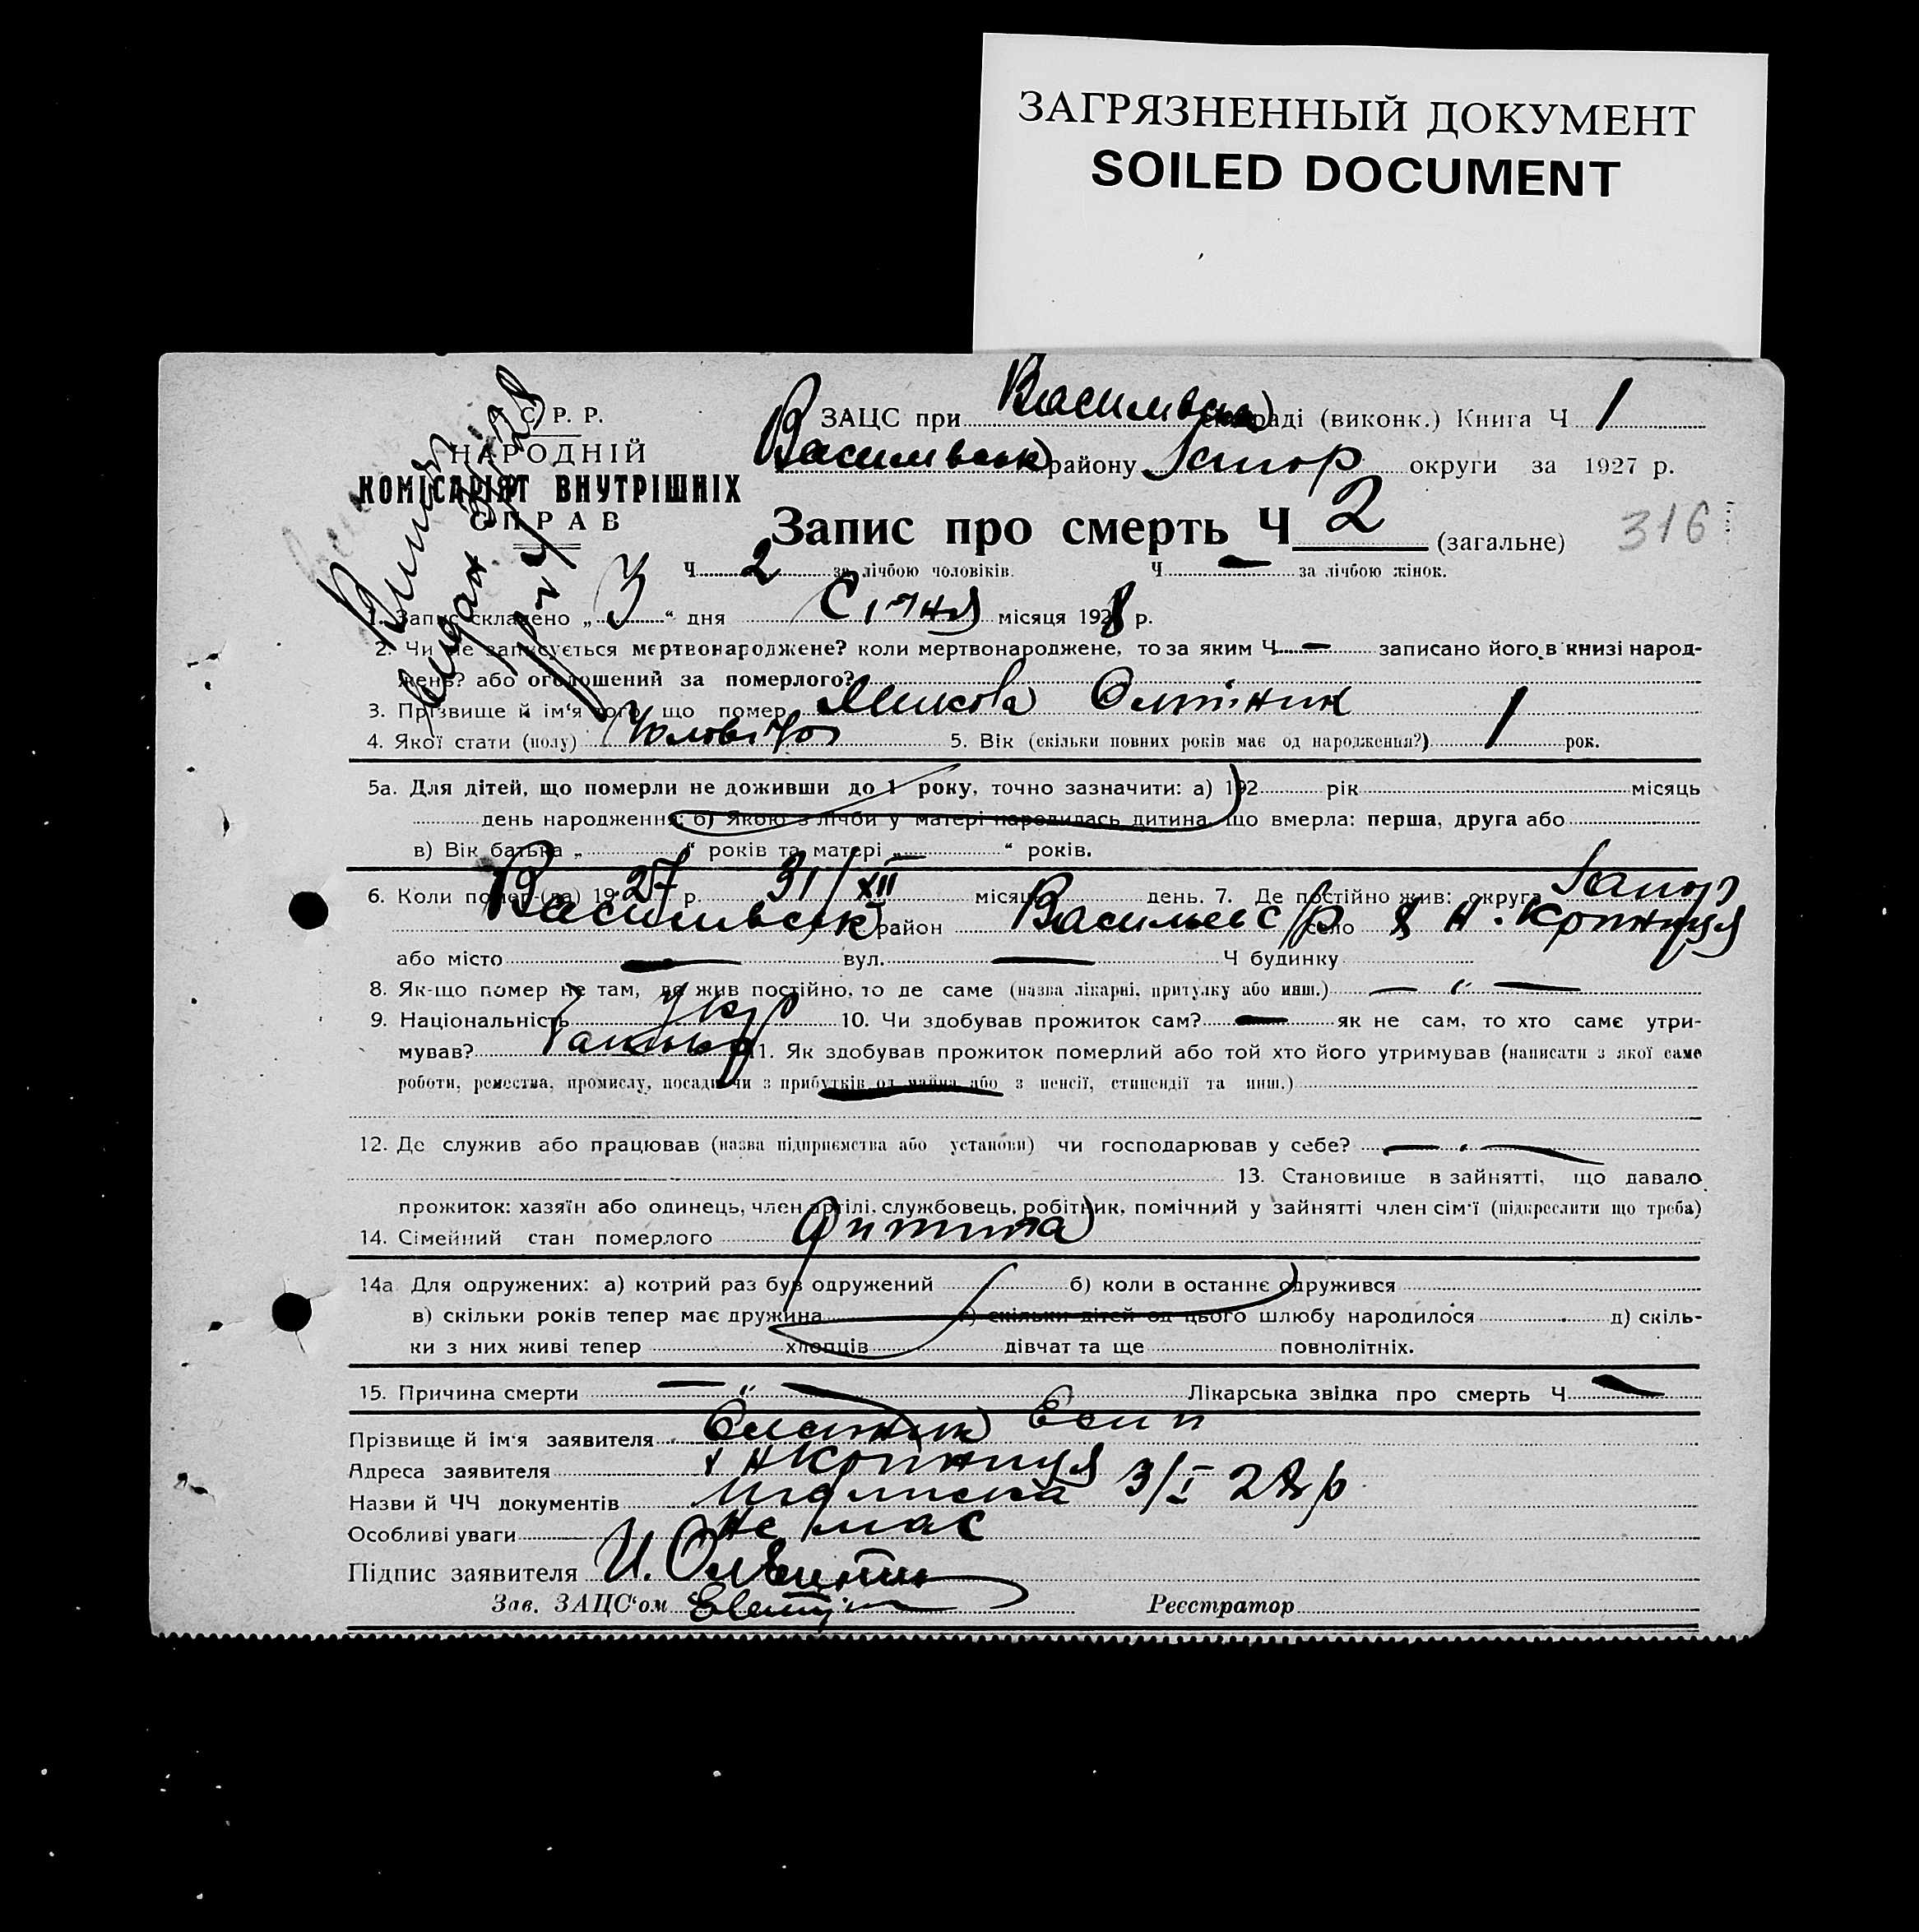 ЗАГРЯЗНЕННЫЙ ДОКУМЕНТ
SOILED DOCUMENT
У. С. Р. Р.
НАРОДНІЙ
КОМІСАРІЯТ ВНУТРІШНІХ
СПРАВ
ЗАЦС при Васильвськ раді (виконк.) Книга Ч 1
Васильвськ району Запор округи за 1927 р.
Запис про смерть Ч 2 (загальне)
316
Ч 2 за лічбою чоловіків. Ч — за лічбою жінок.
1. Запис складено „ 3 “ дня Січня місяця 1928 р.
2. Чи не записується мертвонароджене? коли мертвонароджене, то за яким Ч — записано його в книзі народ-
жень? або оголошений за померлого?
3. Прізвище й ім‘я того, що помер Микола
4. Якої стати (полу) Чоловічої 5. Вік (скільки повних років має од народження?) 1 рок.
5а. Для дітей, що померли не доживши до 1 року, точно зазначити: а) 192 рік місяць
день народження; б) Якою з лічби у матері народилась дитина, що вмерла: перша, друга або
в) Вік батька „ “ років та матері „ — “ років.
6. Коли помер (ла) 1927 р. 31/XII місяця день. 7. Де постійно жив: округа Запор
Васильвськ район Васильевс/р село х Н. Крыниця
або місто — вул. — Ч будинку
8. Як-що помер не там, де жив постійно, то де саме (назва лікарні, притулку або инш.) — “ —
9. Національність Укр 10. Чи здобував прожиток сам? — як не сам, то хто саме утри-
мував? 11. Як здобував прожиток померлий або той хто його утримував (написати з якої саме
роботи, ремества, промислу, посади чи з прибутків од майна або з пенсії, стипендії та инш.)
12. Де служив або працював (назва підприємства або установи) чи господарював у себе? — „ —
13. Становище в зайнятті, що давало
прожиток: хазяїн або одинець, член артілі, службовець, робітник, помічний у зайнятті член сім‘ї (підкреслити що треба)
14. Сімейний стан померлого Дитина
14а Для одружених: а) котрий раз був одружений б) коли в останнє одружився
в) скільки років тепер має дружина г) скільки дітей од цього шлюбу народилося д) скіль-
ки з них живі тепер хлопців дівчат та ще повнолітніх.
15. Причина смерти — “ — Лікарська звідка про смерть Ч —
Прізвище й ім‘я заявителя Есип
Адреса заявителя х Н Крыниця
Назви й ЧЧ документів 3/I 28 р
Особливі уваги не має
Підпис заявителя
Зав. ЗАЦС‘ом Реєстратор